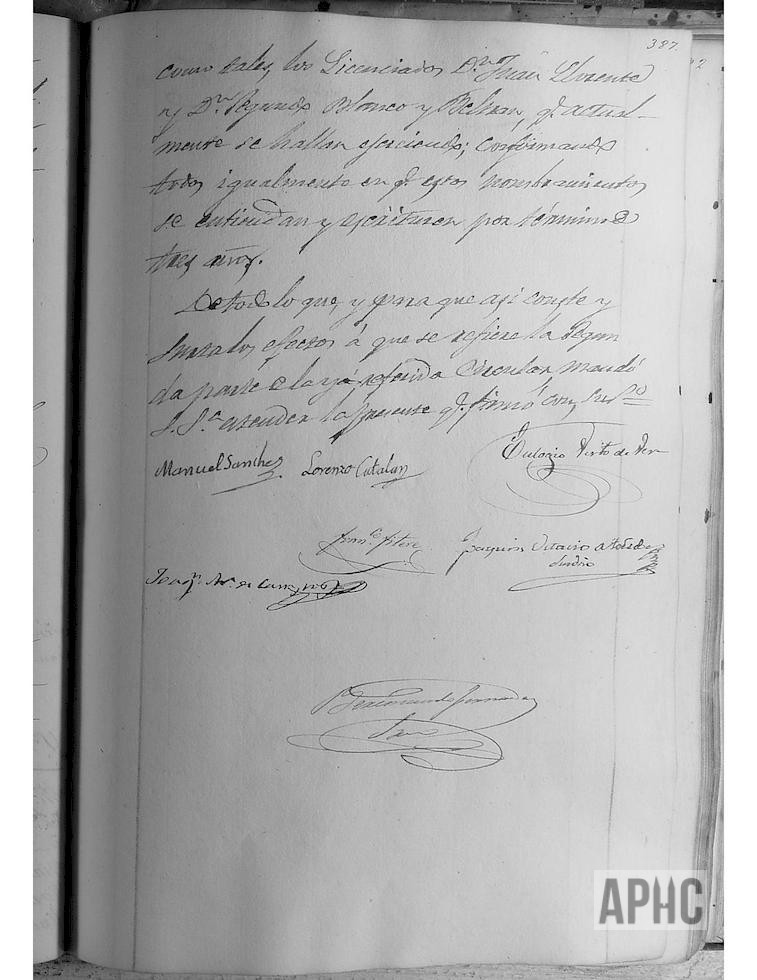 387.
como tales, los Licenciados Dn. Juan Llorente
y Dn. Segundo Blanco y Beltran, q. actual-
mente se hallan ejerciendo; confirmando
todos igualmente en q. estos nombramientos
se entiendan y escrituren por término de
tres años.
De todo lo que, y para que asi conste y
surta los efectos á que se refiere la Segun
da parte de la ya referida Circular mandó
S. Sa. estender la presente q. firmó con, su So
Manuel Sanchez Lorenzo Catalan Eulogio
Franco. Joaquin
Joaqn. Ma. de
Fernandez
APHC